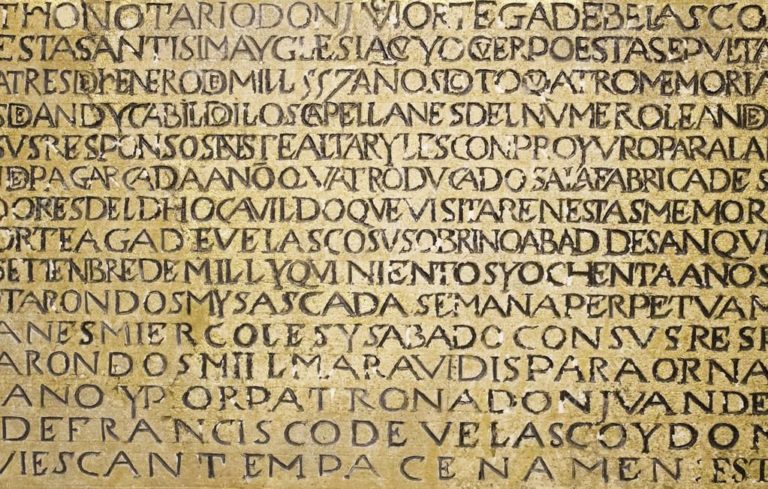 THONOTARIO DON JVº ORTEGA DE BELASCO
ESTA SANTISIMA YGLESIA CVYO CVERPO ESTA SEPVLTA
A TRES DE HENERO DE MILL 557 AÑOS DOTO QVATRO MEMORIA
S DEAN DY CABILDO I LOS CAPELLANES DEL NVMERO LE AN DE
SVS RESPONSOS EN STE ALTAR Y LES CONPRO Y VRO PARA LA
N DE PAGAR CADA AÑO QVATRO DVCADOS A LA FABRICA DE S
DORES DEL DHO CAVILDO QVE VISITAREN ESTAS MEMOR
ORTEAGA DE VELASCO SV SOBRINO ABAD DE SAN QVI
SETIENBRE DE MILL Y QVINIENTOS Y OCHENTA ANOS
TARON DOS MYSAS CADA SEMANA PERPETVAM
ANES MIERCOLES Y SABADO CON SVS RESP
ARON DOS MIIL MARAVIDIS PARA ORNA
ANO Y POR PATRON A DON JVAN DE
DE FRANCISCO DE VELASCO Y DON
VIESCAN TEMPACENAMEN EST